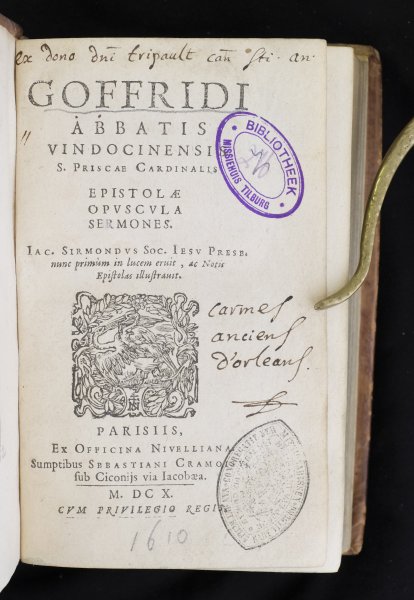 ex dono dni tripault can sti . an .
GOFFRIDI
ABBATIS
VINDOCINENSIS
S. PRISCAE CARDINALIS
EPISTOLÆ
OPVSCVLA
SERMONES.
IAC. SIRMONDVS SOC. IESV PRESB.
nunc primùm in lucem eruit, ac Notis
Epistolas illustrauit.
BIBLIOTHEEK
MISSIEHUIS TILBURG
carmes
anciens
d'orleans.
PARISIIS,
EX OFFICINA NIVELLIANA
Sumptibus SEBASTIANI CRAMOI
sub Ciconijs via Iacobæa.
M. DC X.
CVM PRIVILEGIO REGIS
1610